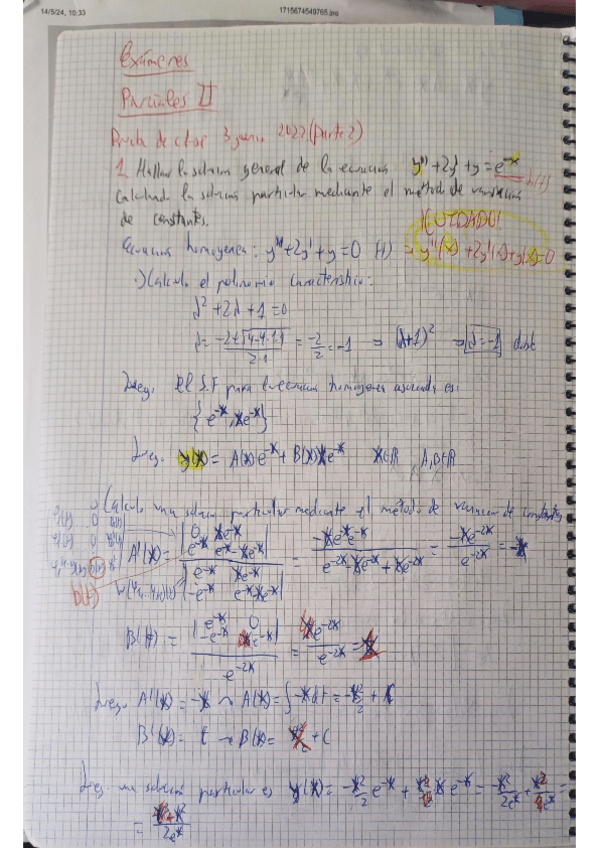 14/5/24, 10:33
1715674549765.jpg
Exámenes
Parciales II
Prueba de clase 3 junio 2022 (parte 2)
1. Hallar la solución general de la ecuación y'' + 2y' + y = e^-x
Calculando la solución particular mediante el método de variación
de constantes.
¡CUIDADO!
Ecuación homogénea: y'' + 2y' + y = 0 (1) ⇒ y''(x) + 2y'(x) + y(x) = 0
·) Calculo el polinomio característico:
λ² + 2λ + 1 = 0
λ = -2 ± √(4-4·1·1) / 2·1 = -2/2 = -1 ⇒ (λ+1)² ⇒ λ = -1 doble
Luego, El S.F para la ecuación homogénea asociada es:
{e^-x, xe^-x}
Luego, y(x) = A(x)e^-x + B(x)xe^-x x∈ℝ, A,B∈ℝ
Calculo una solución particular mediante el método de variación de constantes
A'(x) = |0 xe^-x; e^-x e^-x - xe^-x| / |e^-x xe^-x; -e^-x e^-x - xe^-x| = -xe^-x e^-x / e^-2x - xe^-x + xe^-x = -xe^-2x / e^-2x = -x
b(t)
B'(t) = |e^-x 0; -e^-x e^-x| / e^-2x = e^-2x / e^-2x =
Luego, A'(x) = -x → A(x) = ∫ -x dt = -x²/2 + K
B'(x) = t → B(x) = + C
Luego una solución particular es y(x) = -x²/2 e^-x + x e^-x = -x²/2e^x + =
= / 2e^x